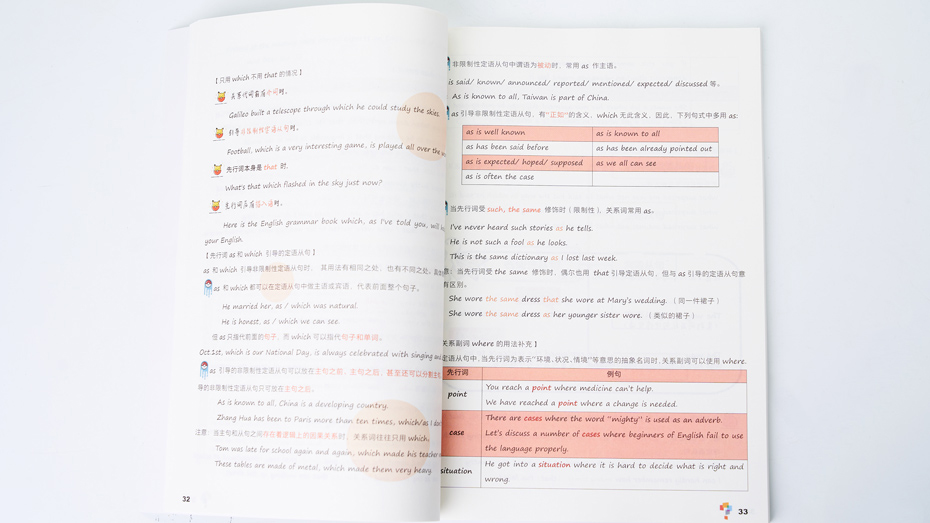 【只用 which 不用 that 的情况】
关系代词前有介词时。
Galileo built a telescope through which he could study the skies.
引导非限制性定语从句时。
Football, which is a very interesting game, is played all over the
先行词本身是 that 时.
What's that which flashed in the sky just now?
先行词后有插入语时。
Here is the English grammar book which, as I've told you, will
your English.
【先行词 as 和 which 引导的定语从句】
as 和 which 引导非限制性定语从句时，其用法有相同之处，也有不同之处。
as 和 which 都可以在定语从句中做主语或宾语，代表前面整个句子。
He married her, as / which was natural.
He is honest, as / which we can see.
但 as 只指代前面的句子，而 which 可以指代句子和单词。
Oct.1st, which is our National Day, is always celebrated with singing and
as 引导的非限制性定语从句可以放在主句之前、主句之后，甚至还可以分割主句
导的非限制性定语从句只可放在主句之后。
As is known to all, China is a developing country.
Zhang Hua has been to Paris more than ten times, which/as I
注意：当主句和从句之间存在着逻辑上的因果关系时，关系词往往只用 which.
Tom was late for school again and again, which made his teacher
These tables are made of metal, which made them very heavy.
32
非限制性定语从句中谓语为被动时，常用 as 作主语。
is said/ known/ announced/ reported/ mentioned/ expected/ discussed 等。
As is known to all, Taiwan is part of China.
as 引导非限制性定语从句，有"正如"的含义，which 无此含义，因此，下列句式中多用 as:
as is well known as is known to all
as has been said before as has been already pointed out
as is expected/ hoped/ supposed as we all can see
as is often the case
当先行词受 such, the same 修饰时（限制性），关系词常用 as。
I've never heard such stories as he tells.
He is not such a fool as he looks.
This is the same dictionary as I lost last week.
意：当先行词受 the same 修饰时，偶尔也用 that 引导定语从句，但与 as 引导的定语从句意
有区别。
She wore the same dress that she wore at Mary's wedding.（同一件裙子）
She wore the same dress as her younger sister wore.（类似的裙子）
关系副词 where 的用法补充】
定语从句中，当先行词为表示"环境、状况、情境"等意思的抽象名词时，关系副词可以使用 where.
先行词 例句
point You reach a point where medicine can't help.
We have reached a point where a change is needed.
case There are cases where the word "mighty" is used as an adverb.
Let's discuss a number of cases where beginners of English fail to use
the language properly.
situation He got into a situation where it is hard to decide what is right and
wrong.
33